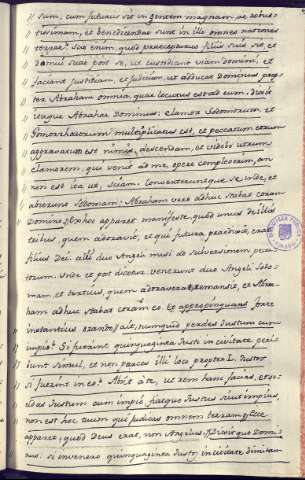 sum, cum futurus sit in gentem magnam, ac robus-
tissimam, et benedicendae sunt in illo omnes nationes
terrae? Scio enim, quod praecepturus filiis suis sit, et
domui suae post se, ut custodiant viam Domini, et
faciant Justitiam, et Judicium, ut adducat Dominus prop-
ter Abraham omnia, quae locutus est ad eum. Dixit
itaque Abrahae Dominus: clamor Sodomorum, et
Gomorrhaeorum multiplicatus est, et peccatum eorum
aggravatum est nimis, descendam, et videbo utrum
clamorem, qui venit ad me, opere compleverint, an
non est ita ut, sciam. Converteruntque se inde, et
abierunt Sodomam: Abraham vero adhuc stabat coram
Domino. Ex hoc apparet manifeste, quod unus de illis
tribus, quem adoravit, et qui futura praedixit, erat
filius Dei. alii duo Angeli missi ad subversionem pecca-
torum. Unde et post dicitur, venerunt duo Angeli Sodo-
mam, et tertius, quem adoraverat, remansit, et Abra-
ham adhuc stabat coram eo. Et appropinquans
instantius ait, numquid perdes Justum cum
impio? Si fuerint quinquaginta Justi in civitate peri-
bunt simul, et non parces illi loco propter L. Justos
si fuerint in eo? Absit a te, ut rem hanc facias, et occi-
das Justum cum impio, fiatque Justus sicut impius,
non est hoc tuum qui judicas omnem terram. Hic
apparet, quod Deus erat, non Angelus. Dixitque Domi-
nus. si invenero quinquaginta Justos in civitate dimittam